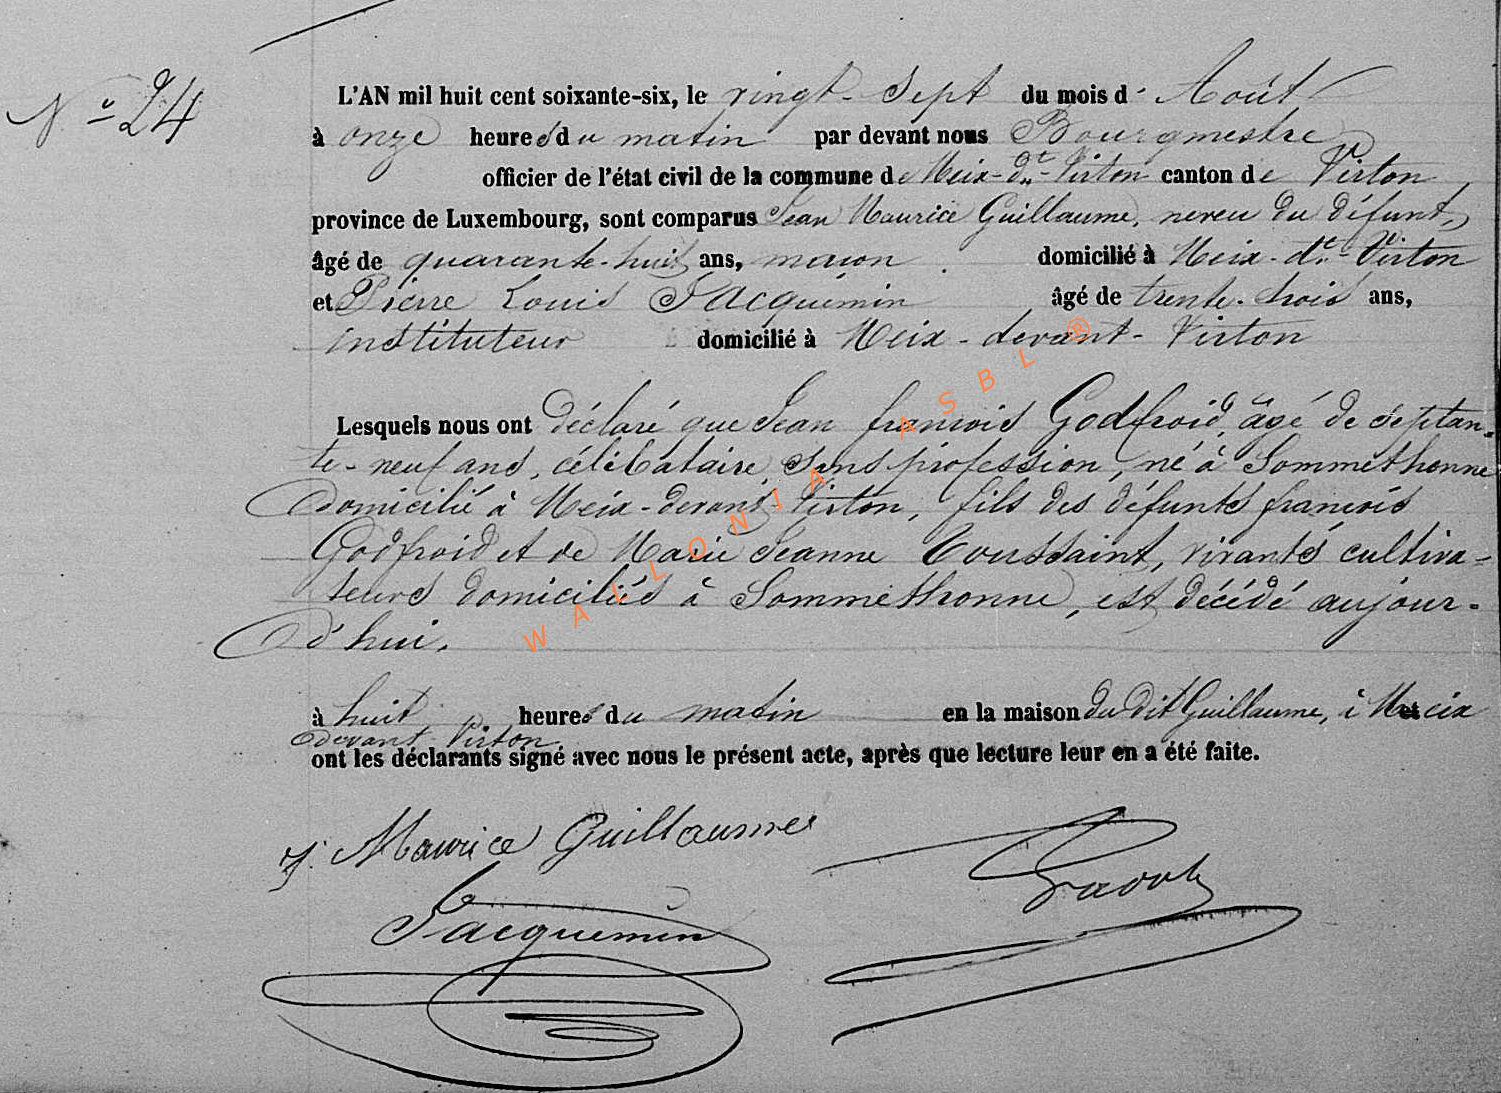 N° 24
L'AN mil huit cent soixante-six, le vingt-sept du mois d'Août
à onze heures du matin par devant nous Bourgmestre
officier de l'état civil de la commune de Meix-dt-Virton canton de Virton,
province de Luxembourg, sont comparus Jean Maurice Guillaume, neveu du défunt,
âgé de quarante-huit ans, maçon domicilié à Meix-dt-Virton
et Pierre Louis Jacquemin âgé de trente-trois ans,
instituteur domicilié à Meix-devant-Virton
Lesquels nous ont déclaré que Jean françois Godfroid, âgé de septan-
te-neuf ans, célibataire, sans profession, né à Sommethonne
domicilié à Meix-devant-Virton, fils des défunts françois
Godfroid et de Marie Jeanne Toussaint, vivants cultiva-
teurs domiciliés à Sommethonne, est décédé aujour-
d'hui.
à huit heures du matin en la maison du dit Guillaume, à Meix
devant Virton
ont les déclarants signé avec nous le présent acte, après que lecture leur en a été faite.
J. Maurice Guillaume
Jacquemin
WALLONIA ASBL ®